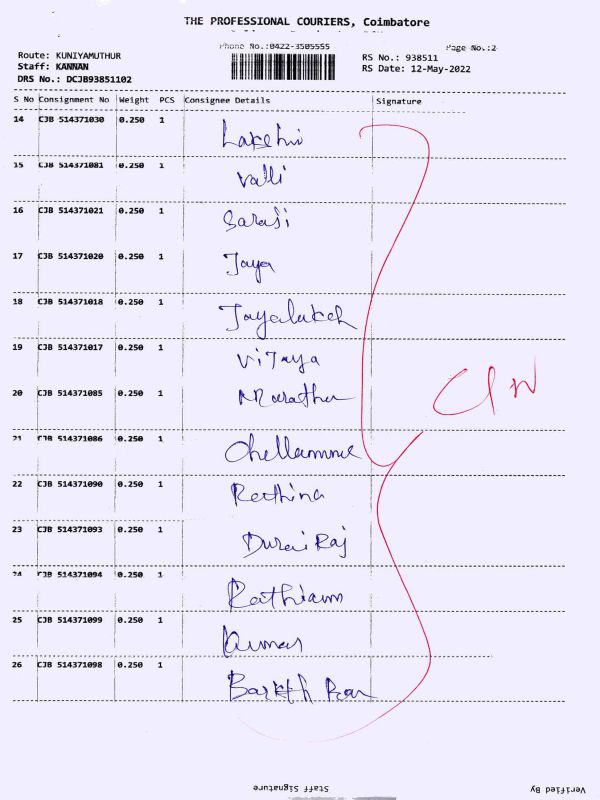 THE PROFESSIONAL COURIERS, Coimbatore
Phone No.:0422-3505555
Page No.:2
Route: KUNIYAMUTHUR
RS No.: 938511
Staff: KANNAN
RS Date: 12-May-2022
DRS No.: DCJB93851102
S No Consignment No Weight PCS Consignee Details Signature
14 CJB 514371030 0.250 1 Lakshmi
15 CJB 514371081 0.250 1 Valli
16 CJB 514371021 0.250 1 Saraji
17 CJB 514371020 0.250 1 Jaya
18 CJB 514371018 0.250 1 Jayalaksh
19 CJB 514371017 0.250 1 Vijaya
20 CJB 514371085 0.250 1
21 CJB 514371086 0.250 1 Chellamma
22 CJB 514371090 0.250 1 Rathina
23 CJB 514371093 0.250 1 Durai Raj
24 CJB 514371094 0.250 1
25 CJB 514371099 0.250 1 Kumar
26 CJB 514371098 0.250 1
Staff Signature
Verified By